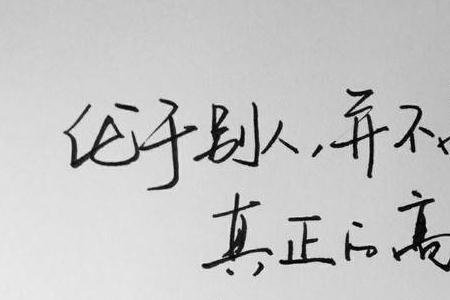 优于别人,并不
真正的高